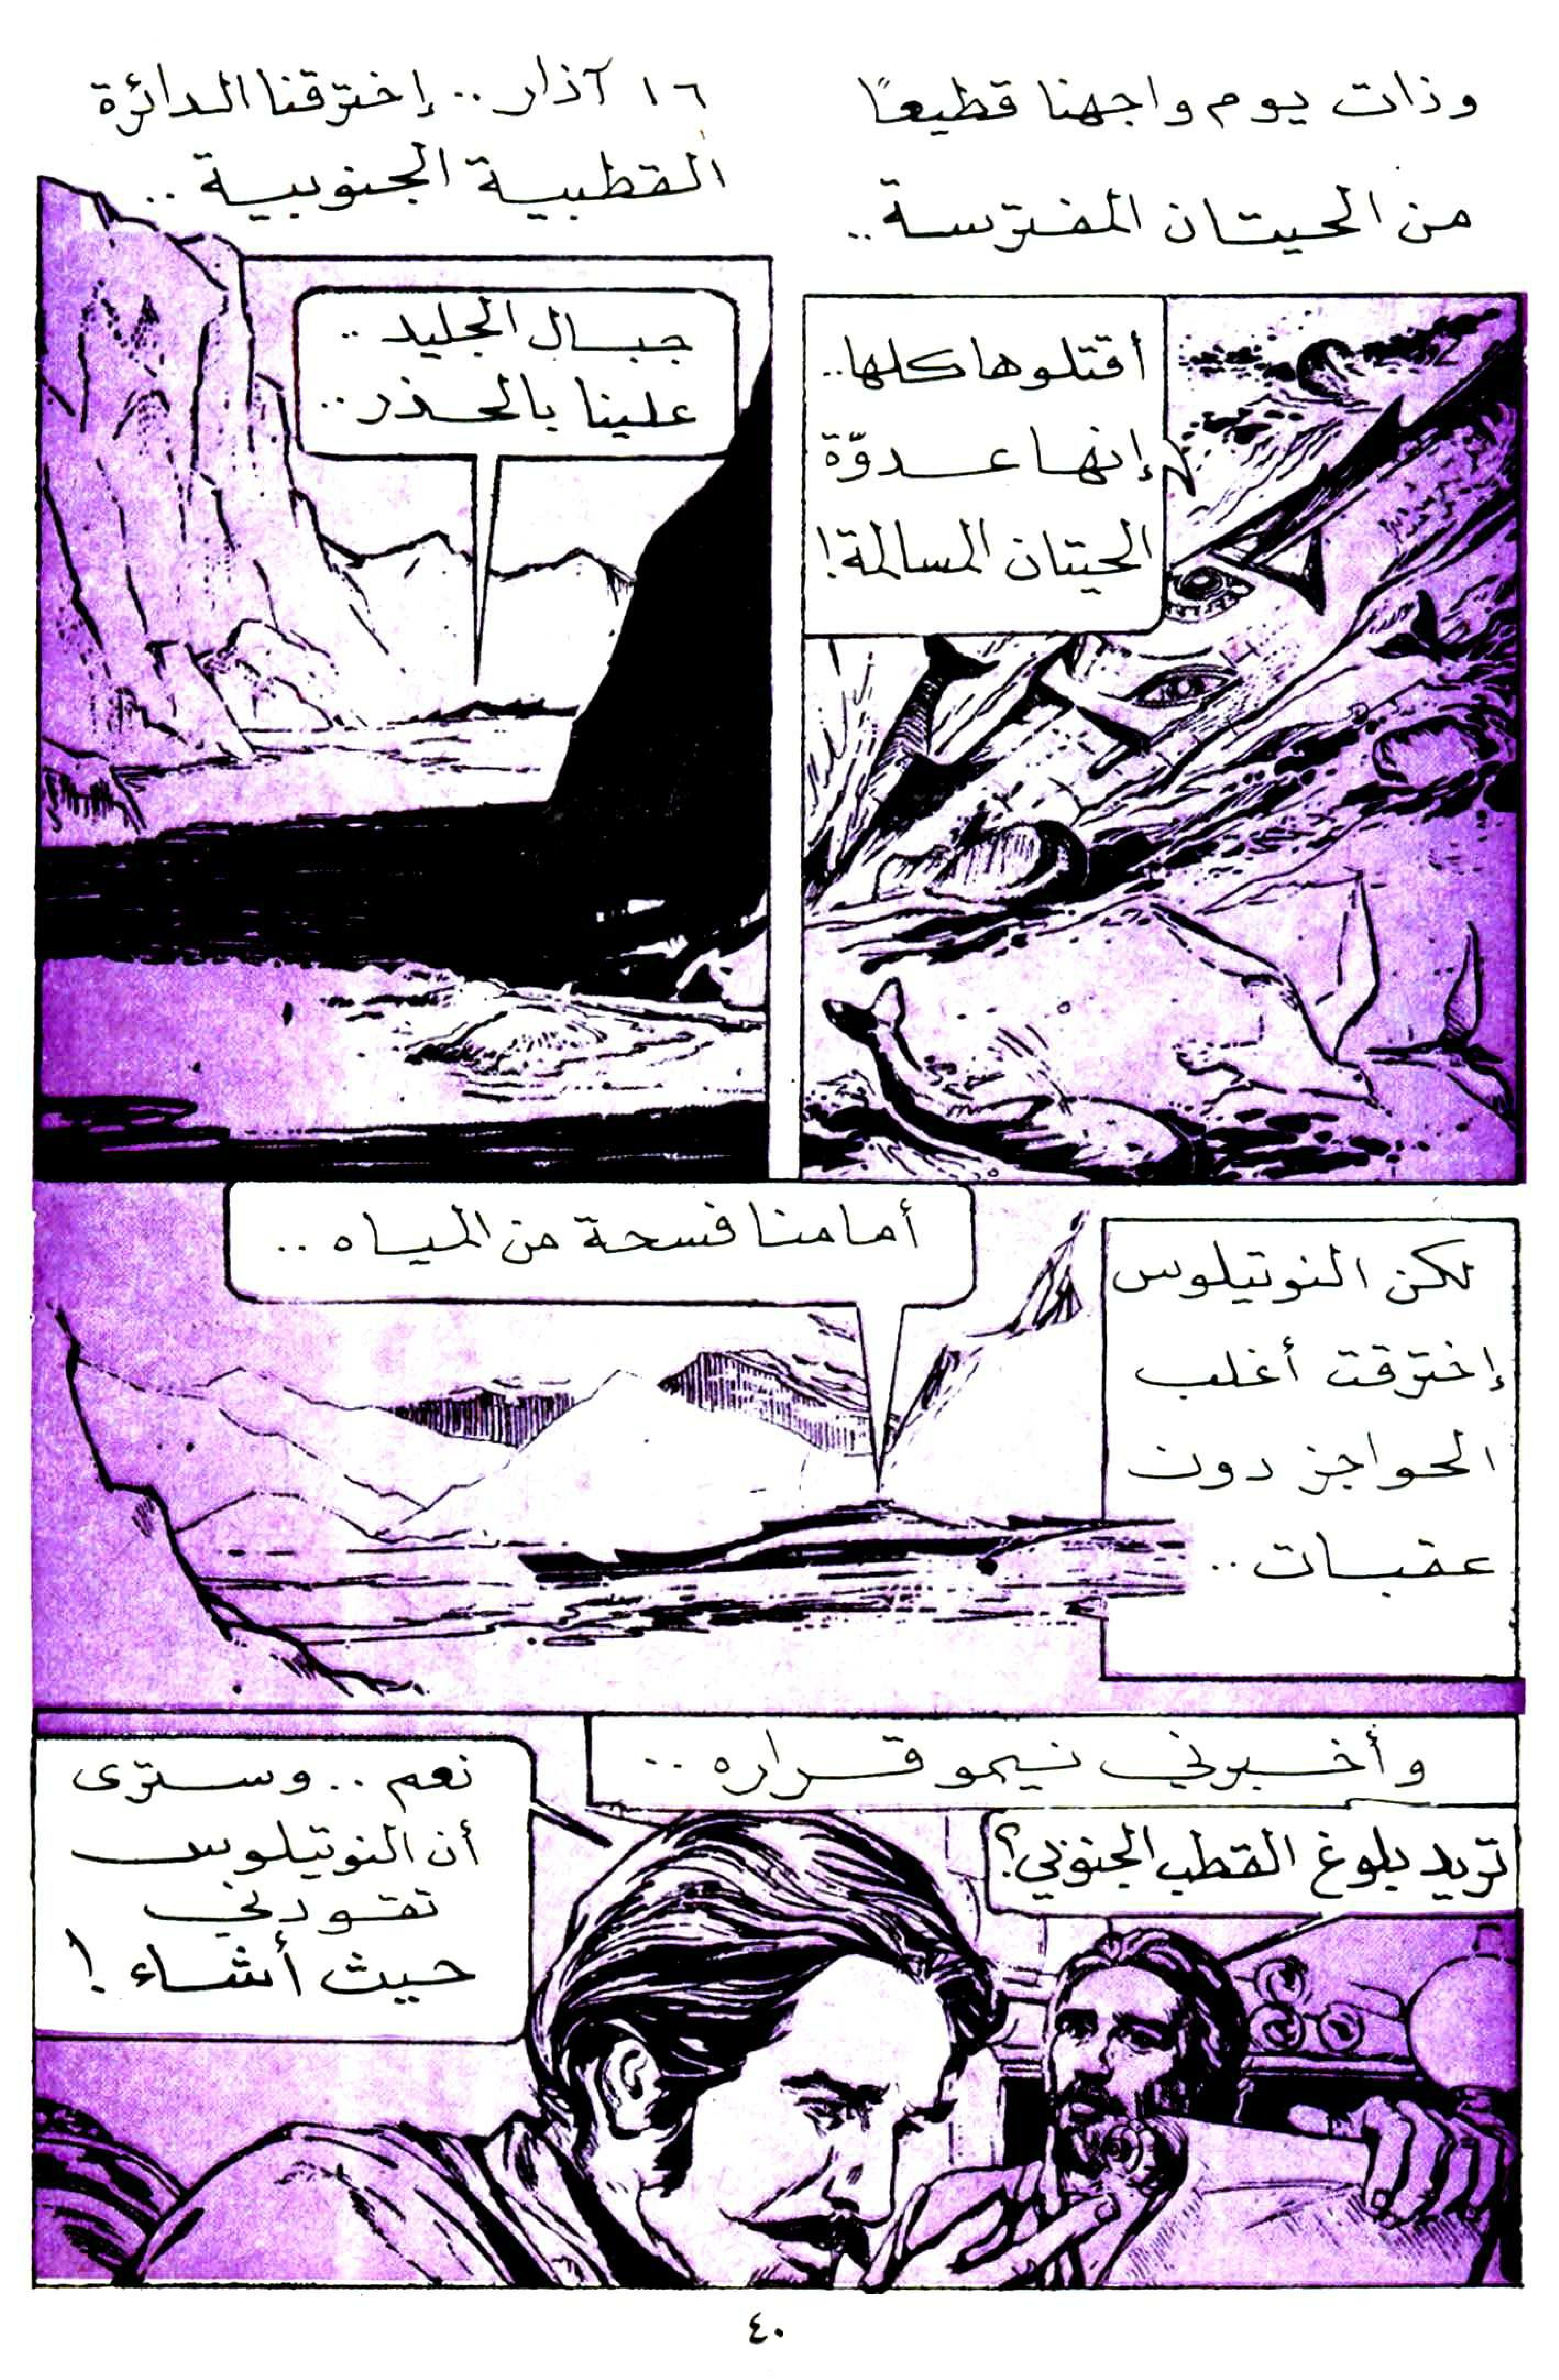 وذات يوم واجهنا قطيعًا
من الحيتان المفترسة..
أقتلوها كلها..
إنها عدوّة
الحيتان المسالمة!
١٦ آذار.. إخترقنا الدائرة
القطبية الجنوبية..
جبال الجليد..
علينا بالحذر..
لكن النوتيلوس
إخترقت أغلب
الحواجز دون
عقبات..
أمامنا فسحة من المياه..
وأخبرني نيمو قراره..
تريد بلوغ القطب الجنوبي؟
نعم.. وسترى
أن النوتيلوس
تقودني
حيث أشاء!
٤٠